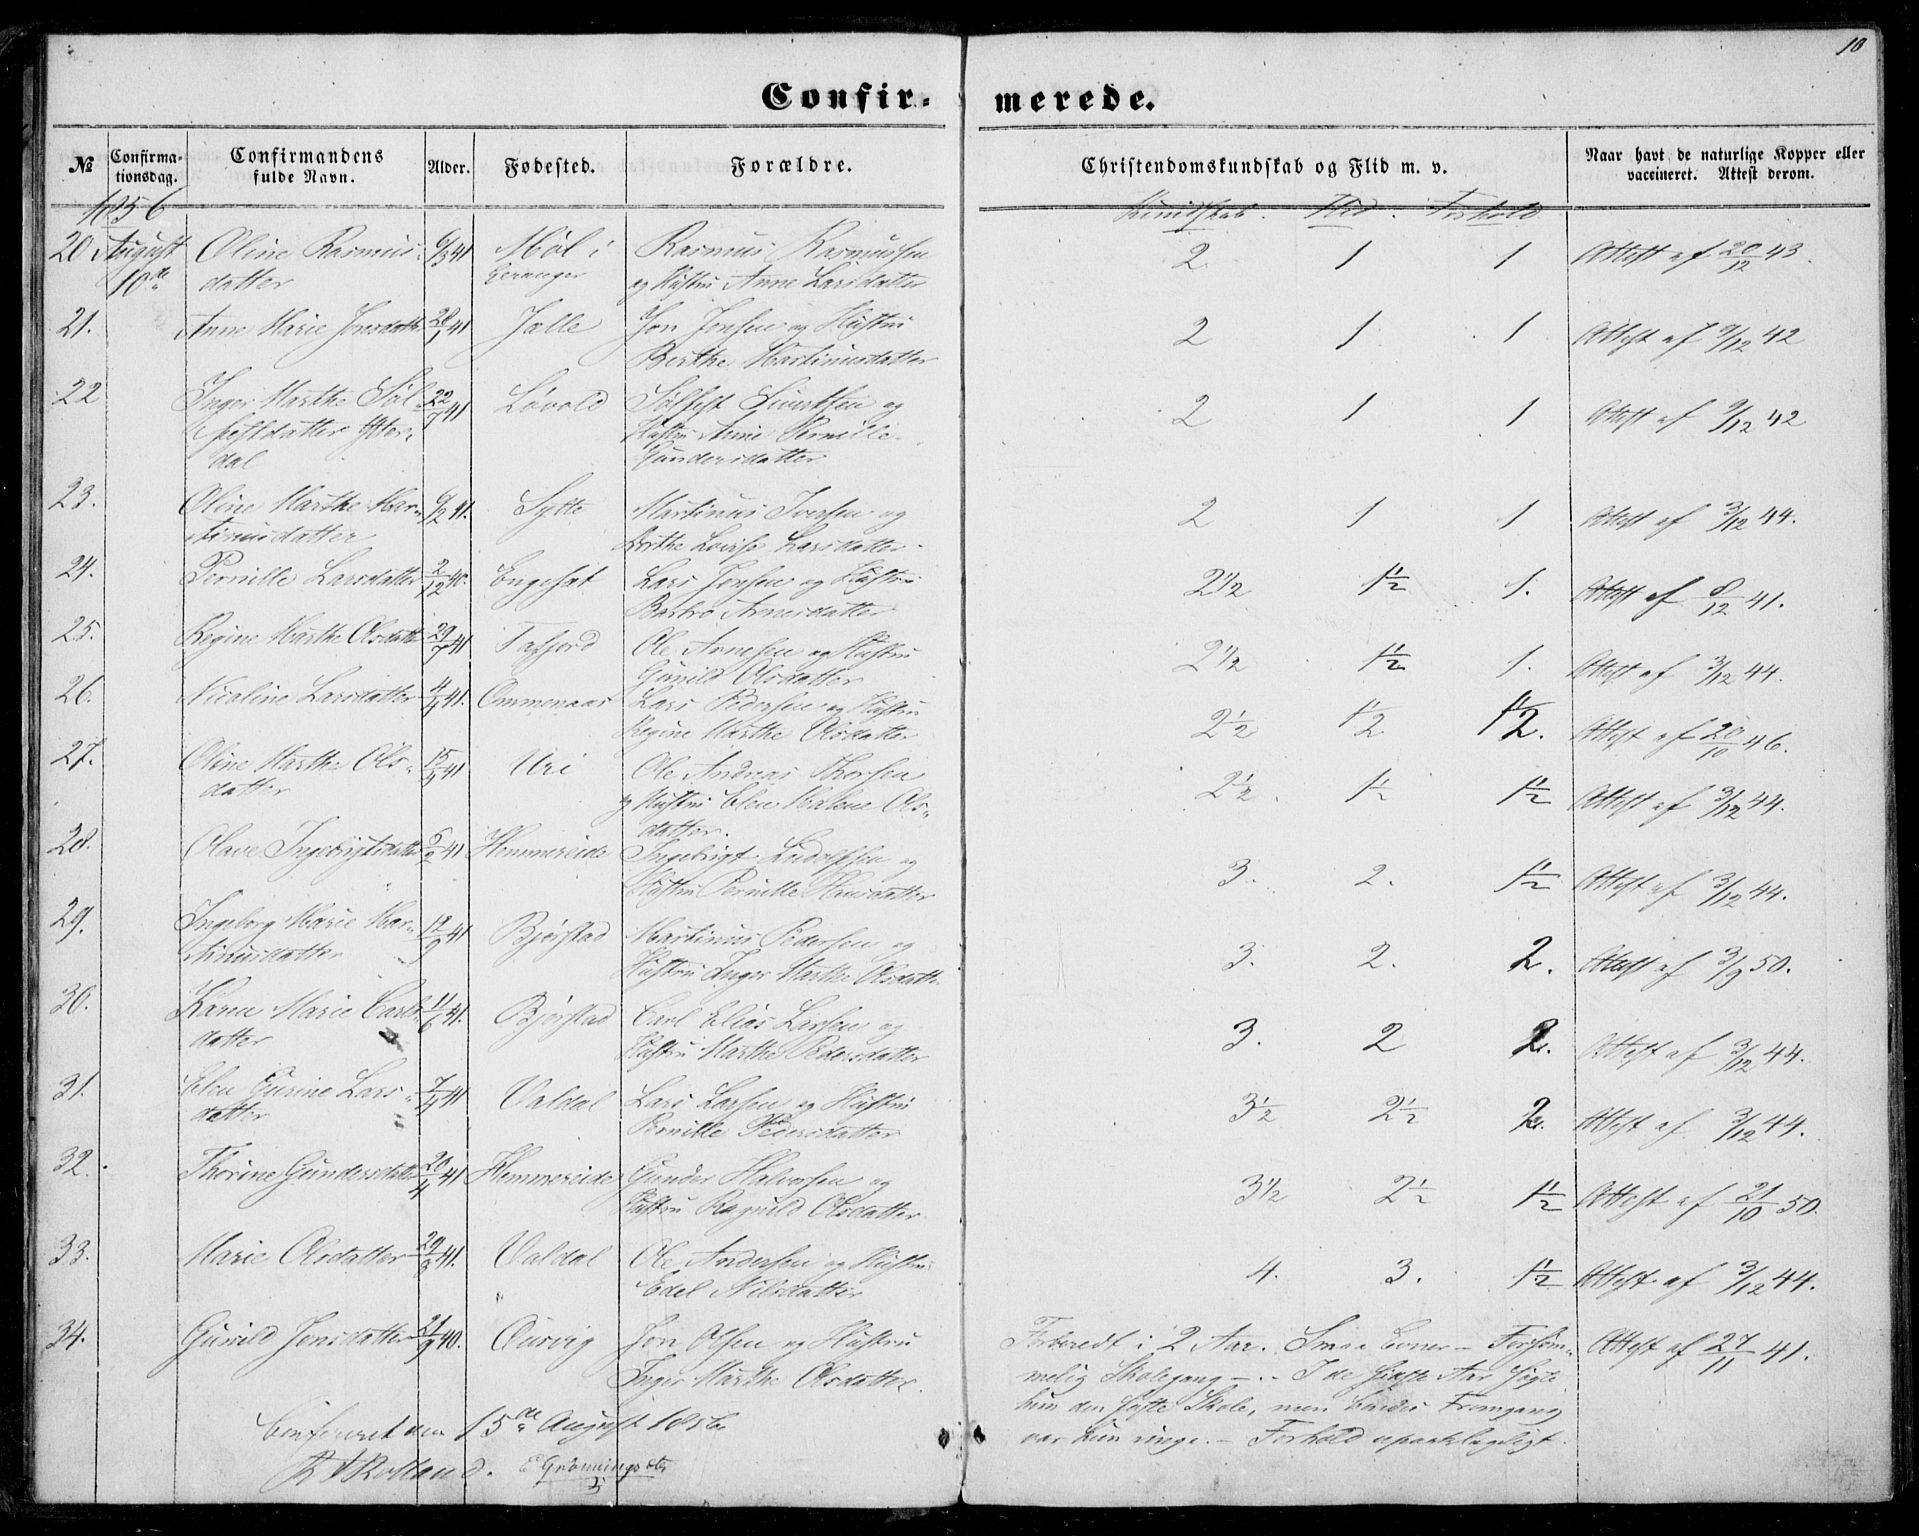 10
Confir- merede.
№ Confirma-tionsdag. Confirmandens fulde Navn. Alder. Fødested. Forældre. Christendomskundskab og Flid m. v. Naar havt de naturlige Kopper eller vaccineret. Attest derom.
1856 Kundskab. Flid. Forhold
20 August Oline Rasmus- 6/3 41 Møl i Rasmus Rasmussen 2 1 1 Attest af 20/12 43.
10de datter Geranger og Hustru Anne Larsdatter
21. Anne Marie Jonsdatter 28/1 41 Jælle Jon Jonsen og Hustru 2 1 1 Attest af 9/12 42
Berthe Martinusdatter
22 Inger Marthe Søl- 22/7 41 Løvold Sølfest Sivertsen og 2 1 1 Attest af 9/12 42
festdatter Ytter- Hustru Anne Pernille
dal Gundersdatter
23. Oline Marthe Mar- 6/2 41. Sylte Martinus Iversen og 2 1 1 Attest af 3/12 44.
tinusdatter Berthe Lovise Larsdatter
24. Pernille Larsdatter 2/12 40. Engeset Lars Jonsen og Hustru 2 1/2 1 1/2 1. Attest af 8/12 41.
Barbro Arnesdatter
25. Regine Marthe Olsdatter 29/7 41 Tafjord Ole Arnesen og Hustru 2 1/2 1 1/2 1. Attest af 3/12 44.
Gunild Olsdatter
26. Nicoline Larsdatter 4/4 41. Ommenaas Lars Pedersen og Hustru 2 1/2 1 1/2 1 1/2. Attest af 20/10 46.
Regine Marthe Olsdatter
27. Oline Marthe Ols- 15/4 41 Uri Ole Andreas Thorsen 2 1/2. 1 1/2 1 1/2 Attest af 3/12 44.
datter og Hustru Elen Malene Ols-
datter.
28. Olave Ingebrigtsdatter 5/2 41 Hemmereide Ingebrigt Ludolfsen og 3. 2. 1 1/2 Attest af 3/12 44.
Hustru Pernille Hansdatter
29. Ingeborg Marie Mar- 12/9 41 Bjørstad Martinus Pedersen og 3. 2. 2. Attest af 3/9 50.
tinusdatter Hustru Inger Marthe Olsdatt.
30. Karen Marie Carls- 11/6 41. Bjørstad Carl Elias Larsen og 3. 2 2. Attest af 3/12 44.
datter Hustru Marthe Pedersdatter
31. Elen Gurine Lars- 7/4 41 Valdal Lars Larsen og Hustru 3 1/2 2 1/2 2. Attest af 3/12 44.
datter Pernille Pedersdatter
32. Thorine Gundersdatter 20/4 41 Hemmereide Gunder Halvorsen og 3 1/2 2 1/2 1 1/2 Attest af 21/10 50.
Hustru Ragnild Olsdatter
33. Marie Olsdatter 29/3 41. Valdal Ole Andersen og Hustru 4. 3. 1 1/2 Attest af 3/12 44.
Edel Nilsdatter
34. Gunild Jonsdatter 21/9 40. Ourvig Jon Olsen og Hustru Forberedt i 2 Aar. Smaa Evner – Forsøm- Attest af 27/11 41.
Inger Marthe Olsdatter. melig Skolegang –. – I de sidste Aar søgte
hun den faste Skole, men hendes Fremgang
var kun ringe. – Forhold upaaklageligt.
Confereret den 15de August 1856
E Grønningsæter